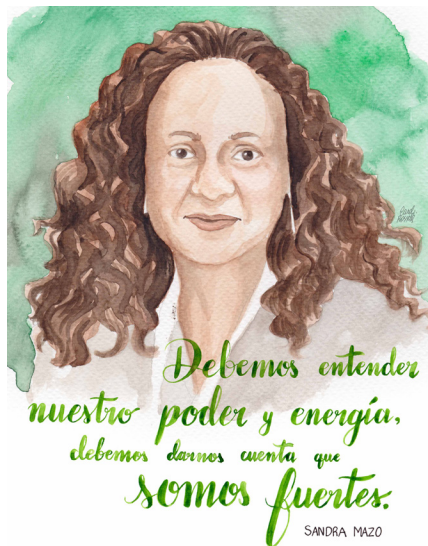 Debemos entender
nuestro poder y energía,
debemos darnos cuenta que
somos fuertes.
SANDRA MAZO